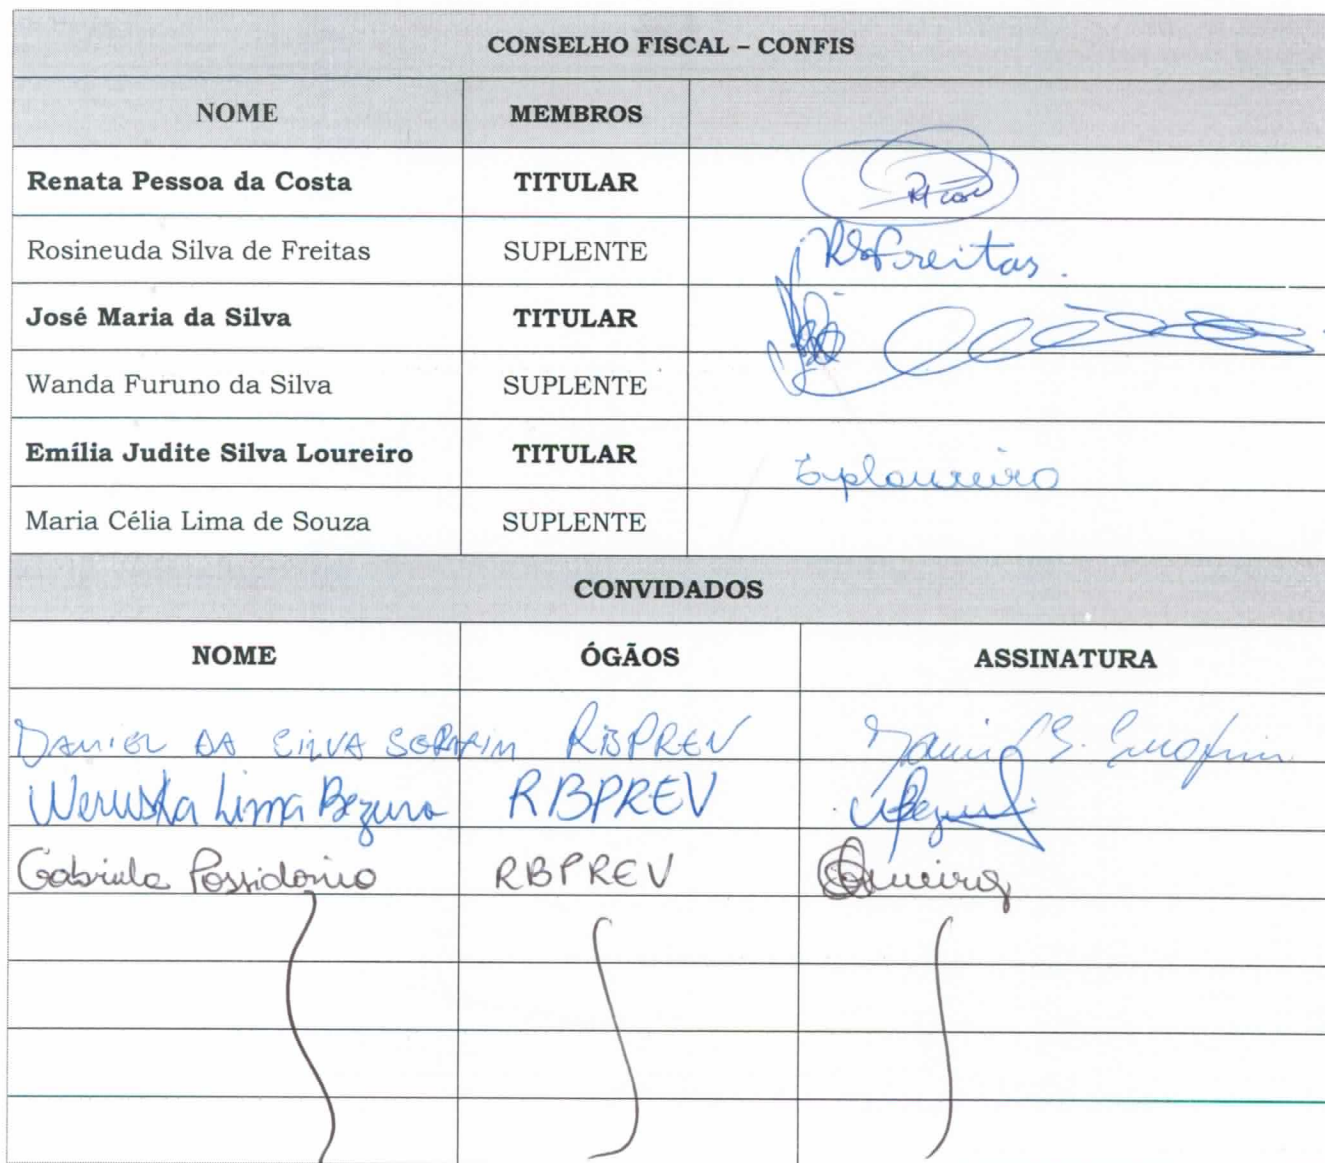 CONSELHO FISCAL – CONFIS
NOME MEMBROS
Renata Pessoa da Costa TITULAR
Rosineuda Silva de Freitas SUPLENTE RSFreitas.
José Maria da Silva TITULAR
Wanda Furuno da Silva SUPLENTE
Emília Judite Silva Loureiro TITULAR
Maria Célia Lima de Souza SUPLENTE
CONVIDADOS
NOME ÓGÃOS ASSINATURA
DANIEL DA SILVA SERAFIM RBPREV Daniel S. Serafim
Weruska Lima Bezerra RBPREV
Gabriela Possidonio RBPREV